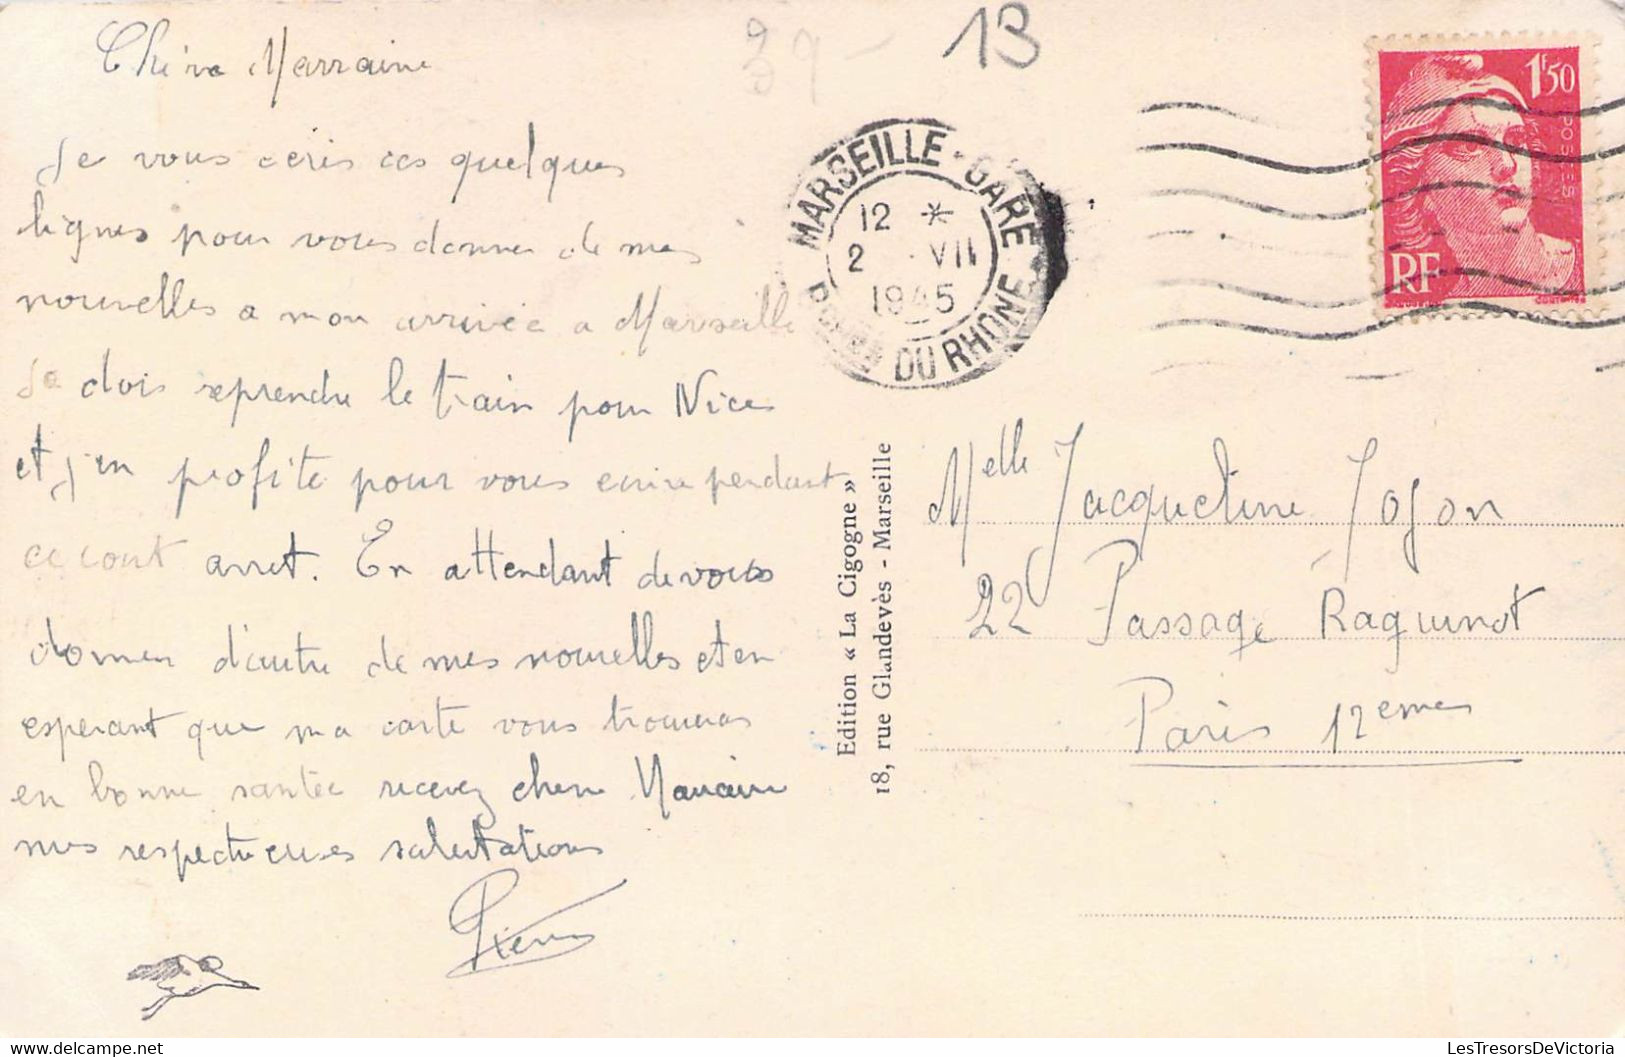 Chère Marraine
Je vous écris ces quelques
lignes pour vous donner de mes
nouvelles a mon arrivée a Marseille
Je dois reprendre le train pour Nice
et j'en profite pour vous ecrire pendant
ce court arret. En attendant de vous
donner d'autre de mes nouvelles et en
esperant que ma carte vous trouveras
en bonne santée recevez chere Marraine
mes respectueuses salutations
Pierre
13
MARSEILLE-GARE
12 *
2 VII
1945
BOUCHES DU RHONE
1F50
POSTES
RF
Edition « La Cigogne »
18, rue Glandevès - Marseille
Melle Jacqueline Jofon
22 Passage Raguinot
Paris 12emes
LesTresorsDeVictoria - delcampe.net
LesTresorsDeVictoria